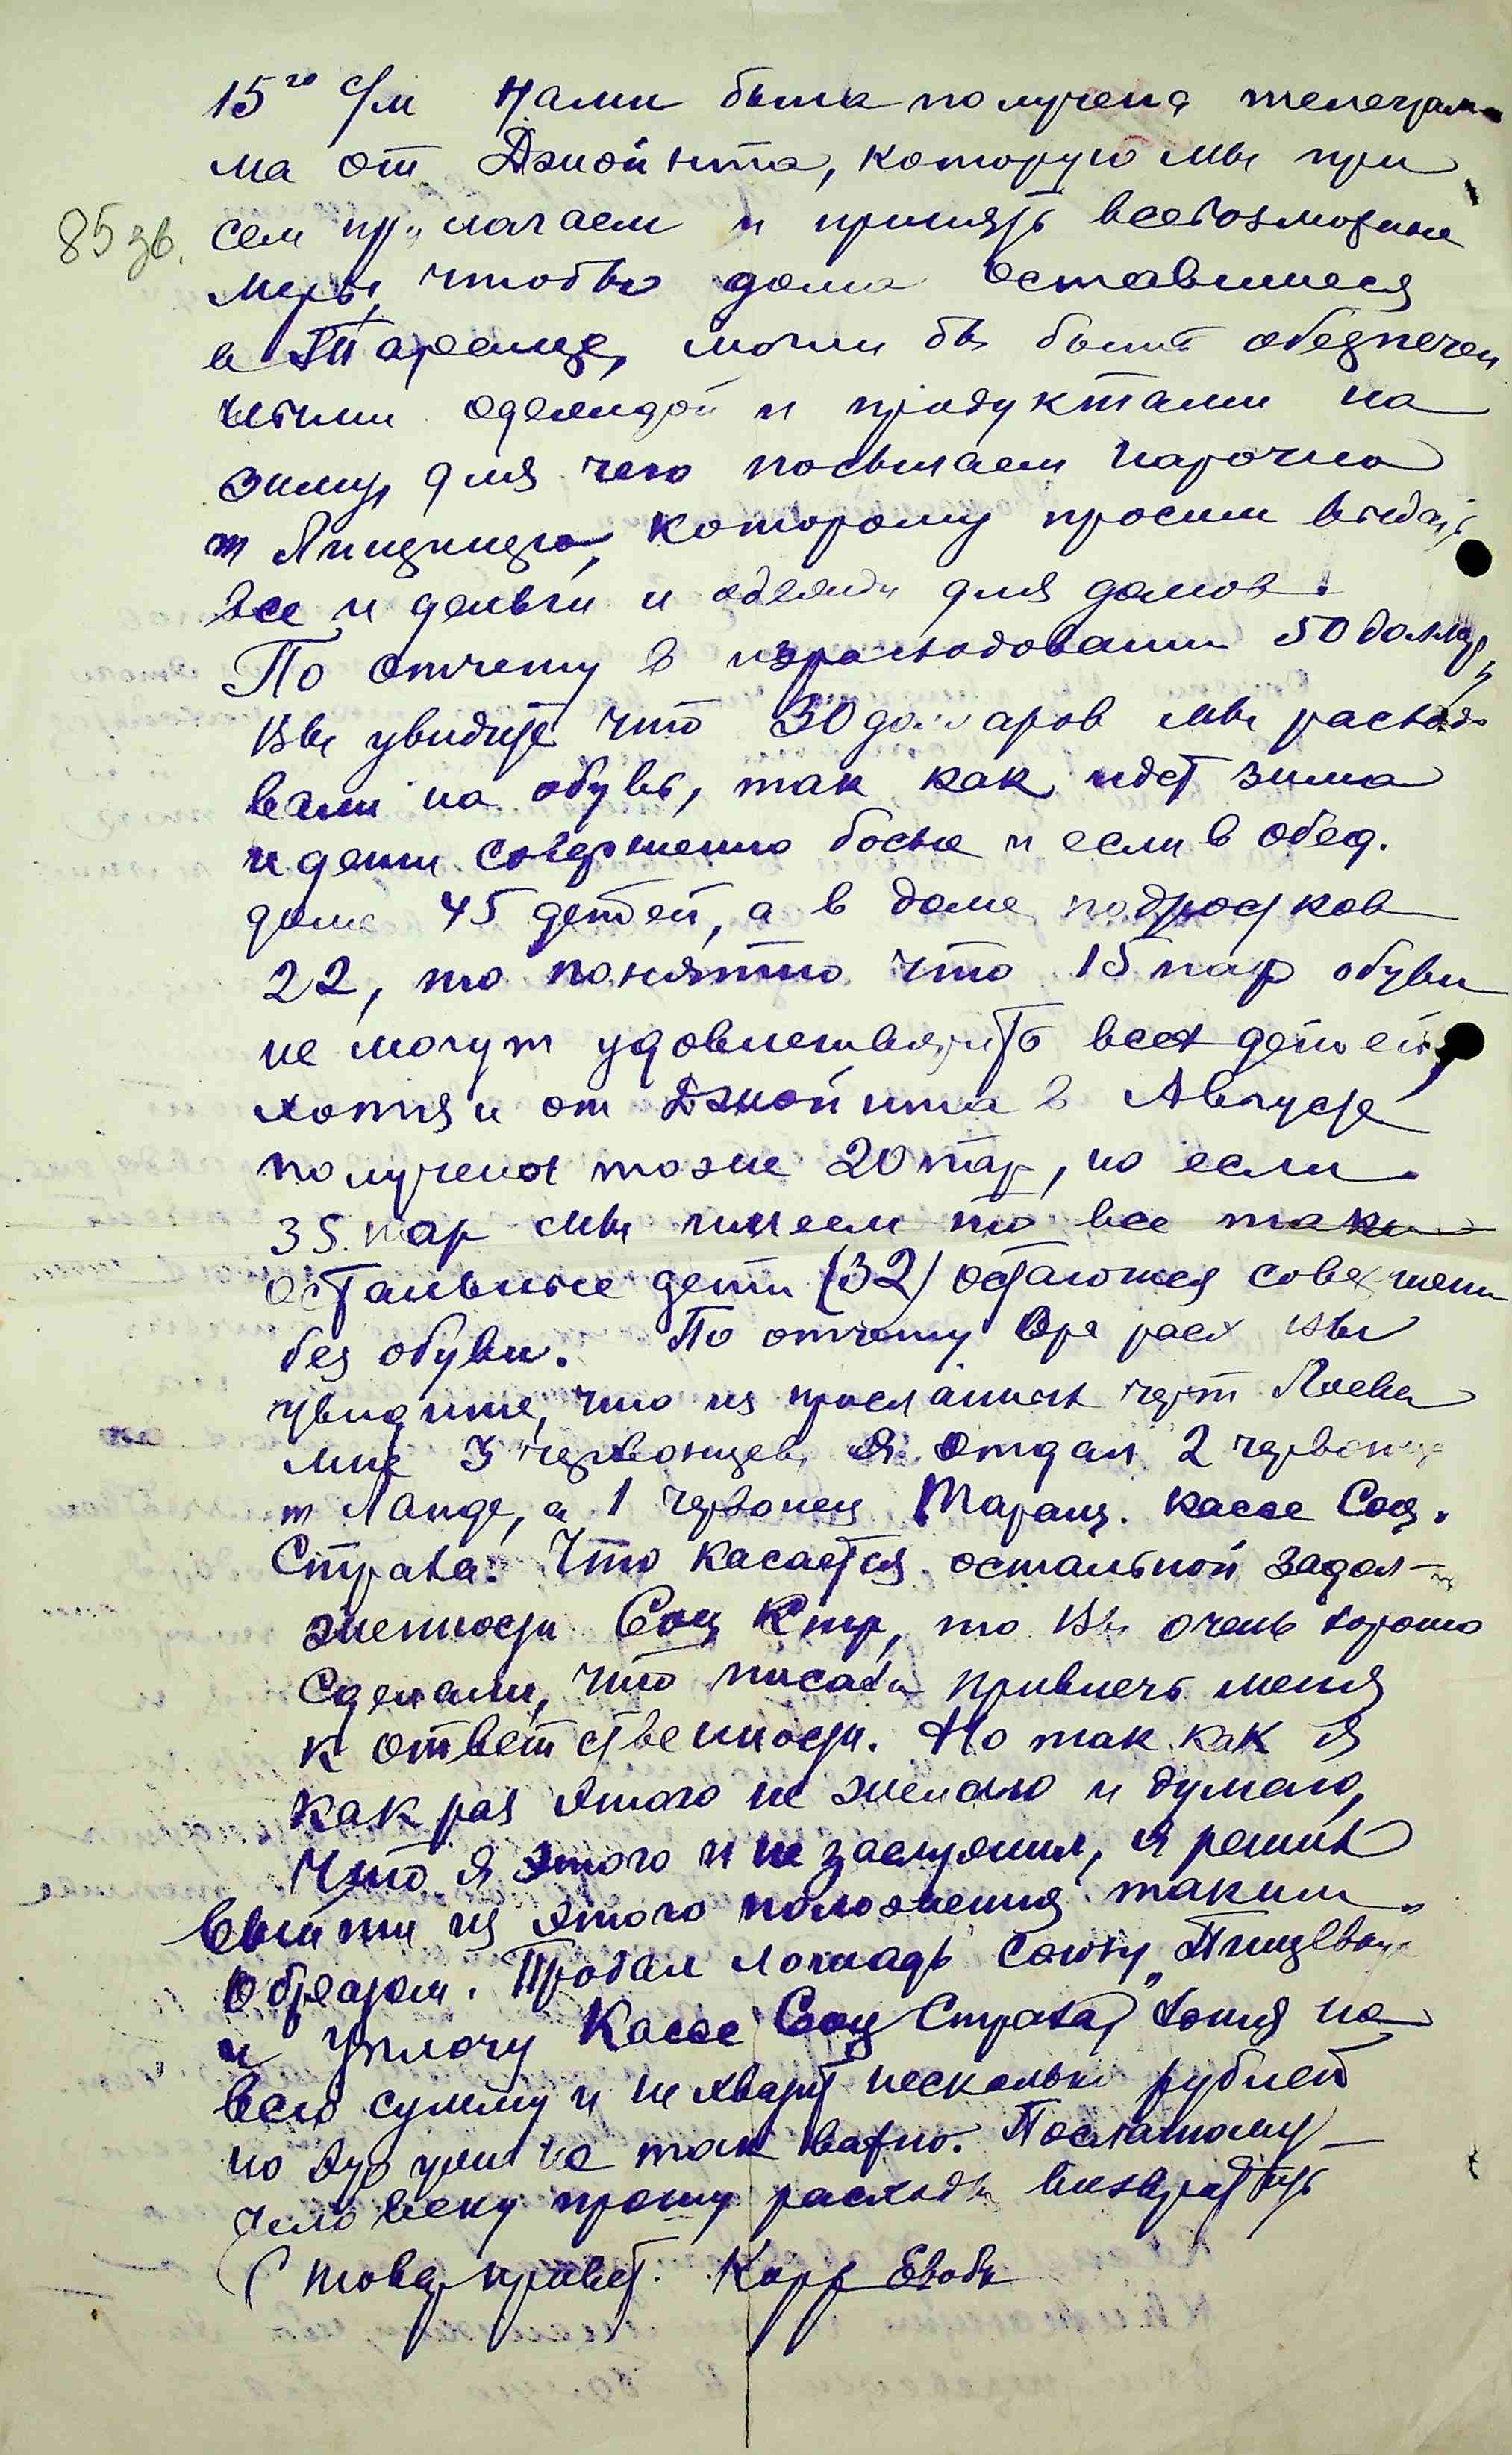 15го с/м Нами была получена телеграм-
ма от Джойнта, которую мы при
сем прилагаем и принять всевозможные
85 зв.
меры, чтобы дома оставшиеся
в Тараще, могли бы быть обезпечен
ными одеждой и продуктами на
зиму, для чего посылаем нарочно
т которому просим выдать
все и деньги и одежду для домов.
По отчету в израсходовании 50 доллар
Вы увидите что 30 долларов мы расходо
вали на обувь, так как идет зима
и дети совершенно босые и если в обед.
доме 45 детей, а в доме подростков
22, то понятно что 15 пар обуви
не могут удовлетворить всех детей,
хотя и от Джойнта в Августе
получено тоже 20 пар, но если
35 пар мы имеем то все таки
остальные дети (32) остаются совершенно
без обуви. По отчету Вы
увидите, что из присланных через
мне 3 червонцев, я отдал 2 червонца
т Ланде, а 1 червонец Таращ. кассе Соц.
Страха. Что касается остальной задол-
женности Соц Стр, то Вы очень хорошо
сделали, что писали привлечь меня
к ответственности. Но так как я
как раз этого не желаю и думаю,
что я этого и не заслужил, я решил
выйти из этого положения таким
образом. Продал лошадь союзу "Пищевкус"
и уплочу Кассе Соц Страха, хотя на
всю сумму и не хватит несколько рублей
но это уже не так важно. Посланному
человеку прошу расходы возвратить
С товар. привет.